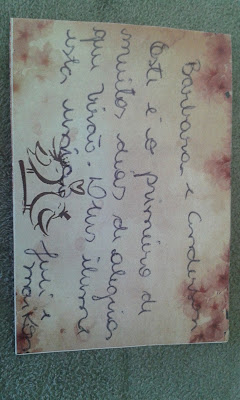 Barbara e Anderson
Este é o primeiro de
muitos dias de alegria
que virão. Deus ilumine
esta união
Juci e
Maikon